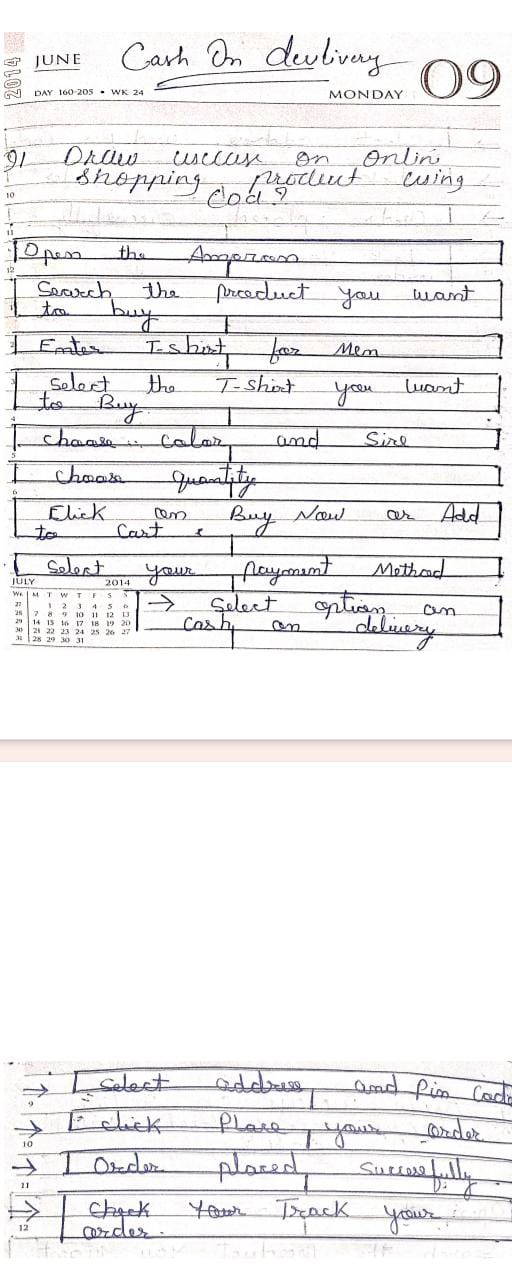 2014
JUNE
Cash On devlivery
DAY 160-205 • WK 24
MONDAY
09
Q1 Draw usecase on Onlin
shopping product using
Cod ?
10
11
Open the Amazon
12
Search the product you want
1
to buy
2
Enter T-shirt for Men
3
Select the T-shirt you want
to Buy.
4
choose color and Size
5
Choose quantity
6
Click on Buy Now or Add
to Cart
Select your Payment Method
JULY 2014
Wk M T W T F S S
27 1 2 3 4 5 6
28 7 8 9 10 11 12 13
29 14 15 16 17 18 19 20
30 21 22 23 24 25 26 27
31 28 29 30 31
→ Select option on
cash on delivery
→ Select address and Pin Code
9
→ click Place your order
10
→ Order placed Successfully
11
→ Check Your Track your
12
order.